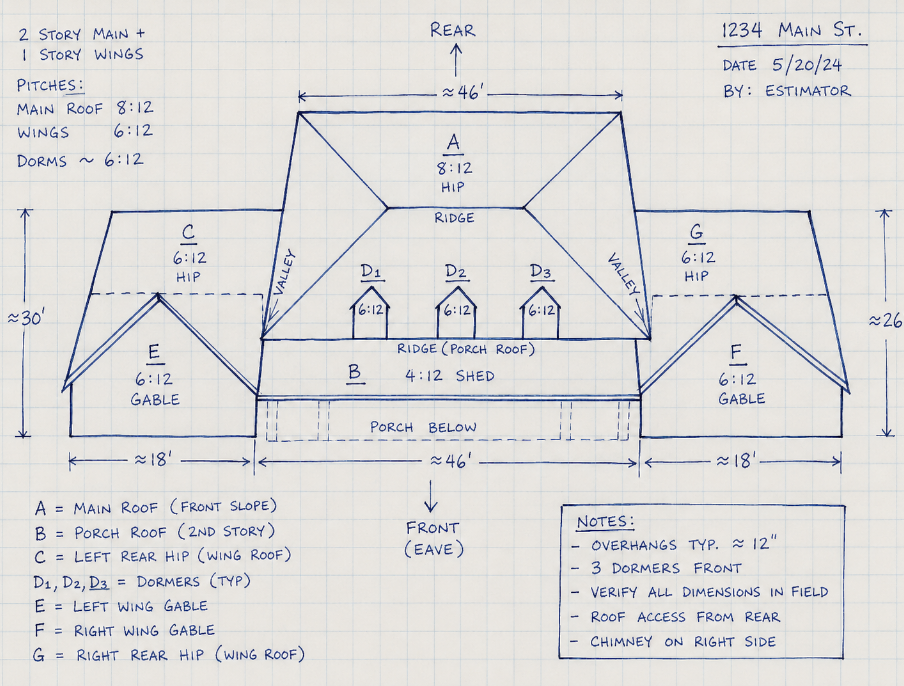 2 STORY MAIN +
1 STORY WINGS
PITCHES:
MAIN ROOF 8:12
WINGS 6:12
DORMS ~ 6:12
REAR
1234 MAIN ST.
DATE 5/20/24
BY: ESTIMATOR
≈46'
A
8:12
HIP
RIDGE
C
6:12
HIP
VALLEY
D1
D2
D3
6:12
6:12
6:12
VALLEY
G
6:12
HIP
≈30'
≈26
RIDGE (PORCH ROOF)
B 4:12 SHED
E
6:12
GABLE
F
6:12
GABLE
PORCH BELOW
≈18'
≈46'
≈18'
FRONT
(EAVE)
A = MAIN ROOF (FRONT SLOPE)
B = PORCH ROOF (2ND STORY)
C = LEFT REAR HIP (WING ROOF)
D1, D2, D3 = DORMERS (TYP)
E = LEFT WING GABLE
F = RIGHT WING GABLE
G = RIGHT REAR HIP (WING ROOF)
NOTES:
- OVERHANGS TYP. ≈ 12"
- 3 DORMERS FRONT
- VERIFY ALL DIMENSIONS IN FIELD
- ROOF ACCESS FROM REAR
- CHIMNEY ON RIGHT SIDE